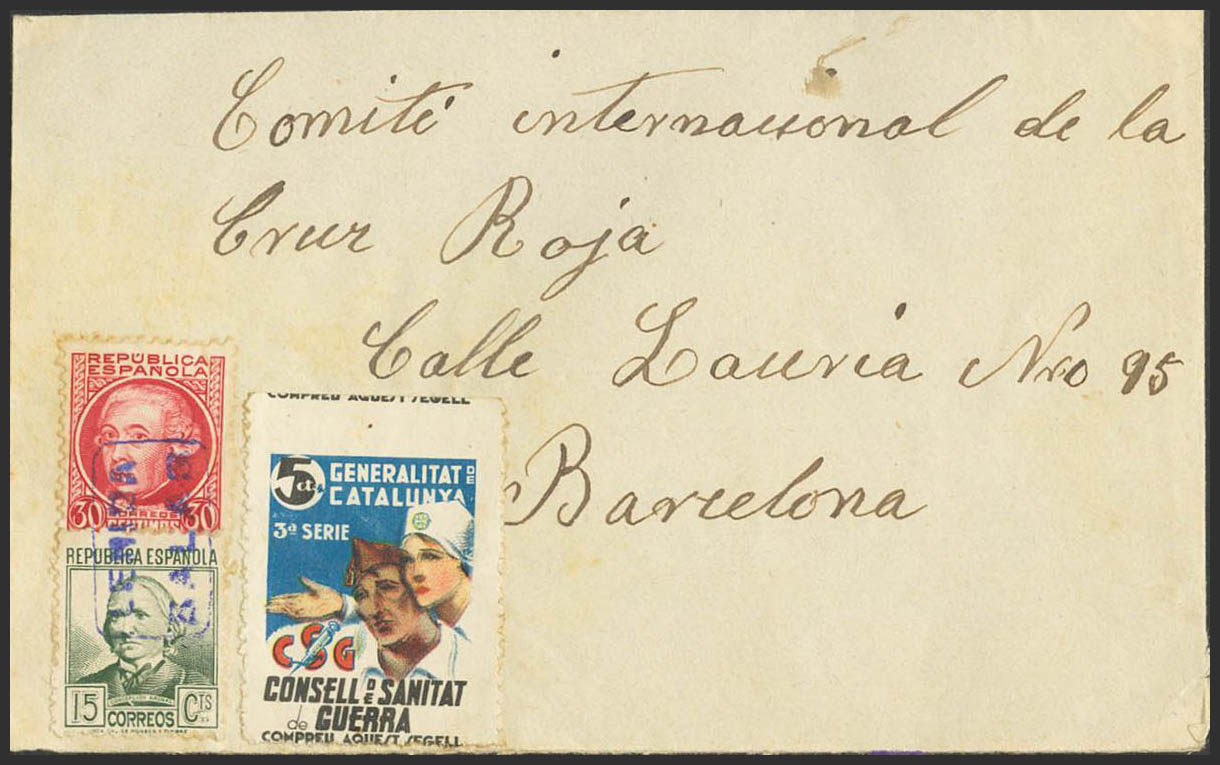 Comité internacional de la
Cruz Roja
Calle Lauria Nro 95
Barcelona
REPÚBLICA
ESPAÑOLA
30 CORREOS 30
REPUBLICA ESPAÑOLA
CONCEPCION ARENAL
15 CORREOS CTS
COMPREU AQUEST SEGELL
5 cts. GENERALITAT DE
CATALUNYA
3ª SERIE
CSG
CONSELL DE SANITAT
de GUERRA
COMPREU AQUEST SEGELL